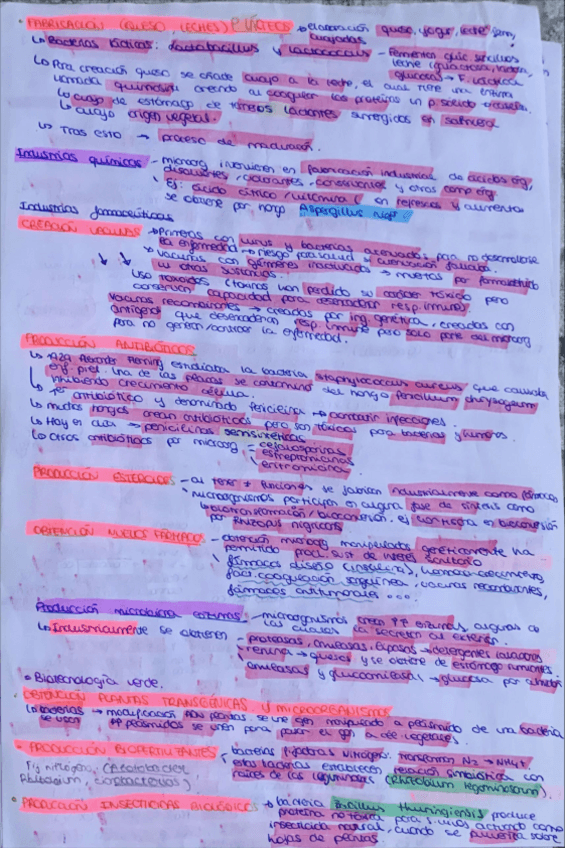 · FABRICACIÓN (QUESO LECHES) P. LÁCTEOS → elaboración queso, yogur, leche ferm, cuajadas
↳ Bacterias lácticas: Lactobacillus y Lactococcus - Fermentan
leche
glucosa → F. láctica
↳ Para creación queso se añade cuajo a la leche, el cual tiene una enzima
llamada quimosina creando al coagular las proteínas un p. sólido
↳ cuajo de estómago de terneros lactantes sumergidos en salmuera
↳ cuajo origen vegetal.
↳ Tras esto → proceso de maduración.
Industrias químicas - microorg intervienen en fabricación industrias de ácidos org,
disolventes, colorantes, conservantes y otros comp org.
Ej: ácido cítrico / vitamina C en refrescos y alimentos
se obtiene por hongo Aspergillus
Industrias farmacéuticas
CREACIÓN VACUNAS → Primeras con virus y bacterias atenuados, para no desarrollar
la enfermedad → riesgo para salud si atenuación fallaba.
→ Vacunas con gérmenes inactivados → muertos por formaldehido
u otras sustancias.
Uso toxoides (toxinas han perdido su carácter tóxido pero
conservan capacidad para desencadenar resp. inmune).
Vacunas recombinantes → creadas por ing. genética, creadas con
antígenos que desencadenan resp. inmune pero solo parte del microorg
para no generar/contraer la enfermedad.
PRODUCCIÓN ANTIBIÓTICOS
↳ 1929 Fleming estudiaba la bacteria Staphylococcus aureus que causaba
enf. piel. Una de las placas se contaminó del hongo Penicillium chrysogenum
inhibiendo crecimiento célula.
↳ 1er antibiótico y denominado penicilina → combatir infecciones.
↳ muchos hongos crean antibióticos pero son tóxicos para bacterias y humanos.
↳ Hoy en día → penicilinas semisintéticas
↳ Otros antibióticos por microorg - cefalosporinas
estreptomicinas
eritromicina
PRODUCCIÓN ESTEROIDES - al tener ≠ funciones se fabrican industrialmente como fármacos
microorganismos participan en alguna fase de síntesis como
biotransformación/bioconversión, ej.
por Rhizopus nigricans
OBTENCIÓN NUEVOS FÁRMACOS - obtención microorg manipulados genéticamente ha
permitido prod. sust de interés sanitario
fármacos diseño (insulina), hormona crecimiento
fact. coagulación sanguínea, vacunas recombinantes,
fármacos antitumorales ...
Producción microbiana enzimas - microorganismos crean enzimas, algunas de
las cuales la secretan al exterior.
↳ Industrialmente se obtienen - proteasas, amilasas, lipasas → detergentes lavadores
renina → quesos y se obtiene de estómago rumiantes.
amilasas y glucoamilasas → glucosa por almidón
· Biotecnología verde.
· OBTENCIÓN PLANTAS TRANSGÉNICAS Y MICROORGANISMOS
↳ bacterias → modificación ADN plantas, se une gen manipulado a plásmido de una bacteria
se usan plásmidos se unen para pasar el gen a cél vegetales.
· PRODUCCIÓN BIOFERTILIZANTES - bacterias fijadoras nitrógeno. Transforman N2 → NH4+.
Fij nitrógeno, (Azotobacter
estas bacterias establecen relación simbiótica con
Rhizobium, cianobacterias)
raíces de las leguminosas (Rhizobium leguminosarum).
· PRODUCCIÓN INSECTICIDAS BIOLÓGICOS → bacteria Bacillus thuringiensis produce
proteína no tóxica para s. vivos actuando como
insecticida natural, cuando se pulveriza sobre
hojas de plantas.